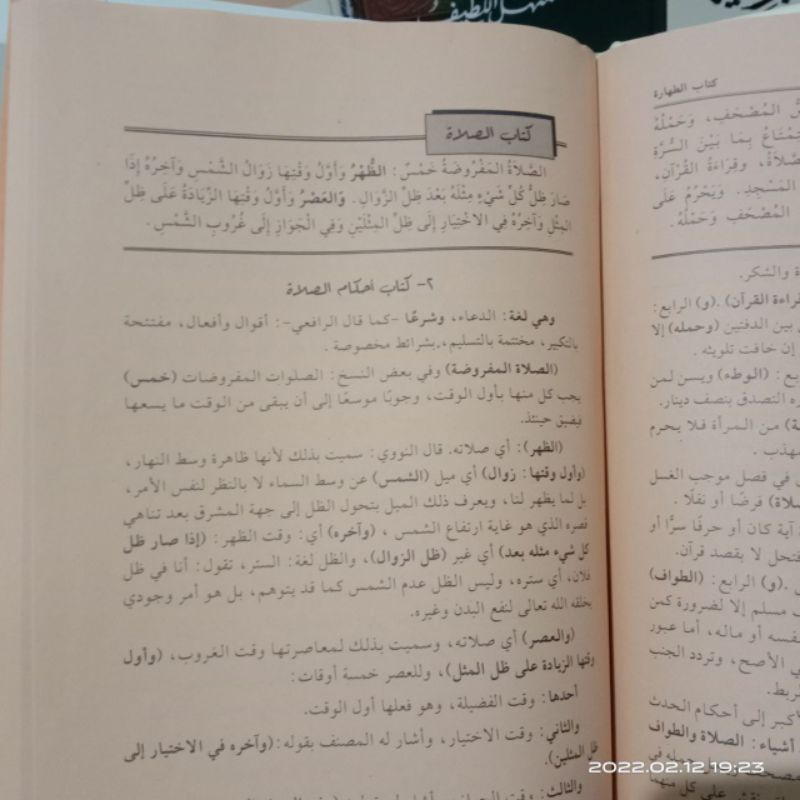 منهل اللطيف
كتاب الصلاة
الصَّلَاةُ المَفْرُوضَةُ خَمْسٌ: الظُّهْرُ وَأَوَّلُ وَقْتِهَا زَوَالُ الشَّمْسِ وَآخِرُهُ إِذَا
صَارَ ظِلُّ كُلِّ شَيْءٍ مِثْلَهُ بَعْدَ ظِلِّ الزَّوَالِ. وَالعَصْرُ وَأَوَّلُ وَقْتِهَا الزِّيَادَةُ عَلَى ظِلِّ
المِثْلِ وَآخِرُهُ فِي الاخْتِيَارِ إِلَى ظِلِّ المِثْلَيْنِ وَفِي الْجَوَازِ إِلَى غُرُوبِ الشَّمْسِ.
٢- كتاب أحكام الصلاة
وهي لغة: الدعاء، وشرعًا -كما قال الرافعي-: أقوال وأفعال، مفتتحة
بالتكبير، مختتمة بالتسليم، بشرائط مخصوصة.
(الصلاة المفروضة) وفي بعض النسخ: الصلوات المفروضات (خمس)
يجب كل منها بأول الوقت، وجوبًا موسعًا إلى أن يبقى من الوقت ما يسعها
فيضيق حينئذ.
(الظهر): أي صلاته. قال النووي: سميت بذلك لأنها ظاهرة وسط النهار،
(وأول وقتها: زوال) أي ميل (الشمس) عن وسط السماء لا بالنظر لنفس الأمر،
بل لما يظهر لنا، ويعرف ذلك الميل بتحول الظل إلى جهة المشرق بعد تناهي
قصره الذي هو غاية ارتفاع الشمس، (وآخره) أي: وقت الظهر: (إذا صار ظل
كل شيء مثله بعد) أي غير (ظل الزوال)، والظل لغة: الستر، تقول: أنا في ظل
فلان، أي ستره، وليس الظل عدم الشمس كما قد يتوهم، بل هو أمر وجودي
يخلقه الله تعالى لنفع البدن وغيره.
(والعصر) أي صلاته، وسميت بذلك لمعاصرتها وقت الغروب، (وأول
وقتها الزيادة على ظل المثل)، وللعصر خمسة أوقات:
أحدها: وقت الفضيلة، وهو فعلها أول الوقت.
والثاني: وقت الاختيار، وأشار له المصنف بقوله: (وآخره في الاختيار إلى
ظل المثلين).
والثالث: وقت
كتاب الطهارة
المُصْحَفِ، وَحَمْلُهُ
بِمَا بَيْنَ السُّرَّةِ
وَقِرَاءَةُ القُرْآنِ،
المَسْجِدِ. وَيَحْرُمُ عَلَى
المُصْحَفِ وَحَمْلُهُ.
والشكر.
قراءة القرآن). (و) الرابع:
بين الدفتين (وحمله) إلا
إن خافت تلويثه.
(الوطء) ويسن لمن
التصدق بنصف دينار.
من المرأة فلا يحرم
في فصل موجب الغسل
فرضًا أو نفلًا.
آية كان أو حرفًا سرًّا أو
لا بقصد قرآن.
(و) الرابع: (الطواف)
مسلم إلا لضرورة كمن
أو ماله، أما عبور
الأصح، وتردد الجنب
إلى أحكام الحدث
أشياء: الصلاة والطواف
2022.02.12 19:23